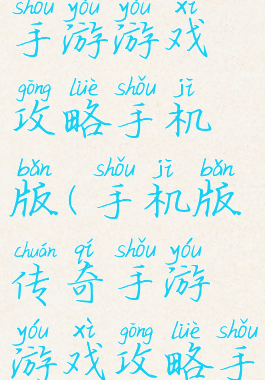 shǒu yóu yóu xì
手游游戏
gōng lüè shǒu jī
攻略手机
bǎn shǒu jī bǎn
版(手机版
chuán qí shǒu yóu
传奇手游
yóu xì gōng lüè shǒu
游戏攻略手